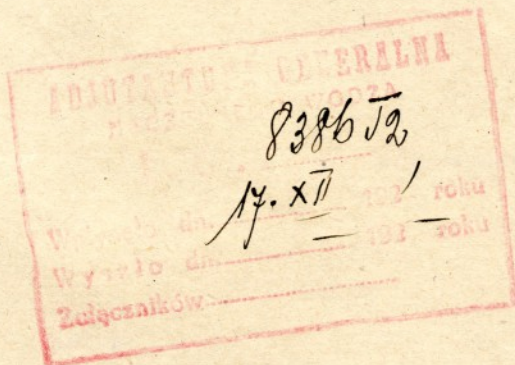 ADJUTANTURA GENERALNA
WODZA
8386 T2
17. XII
Wpłynęło dn. 192 roku
Wyszło dn. 192 roku
Załączników